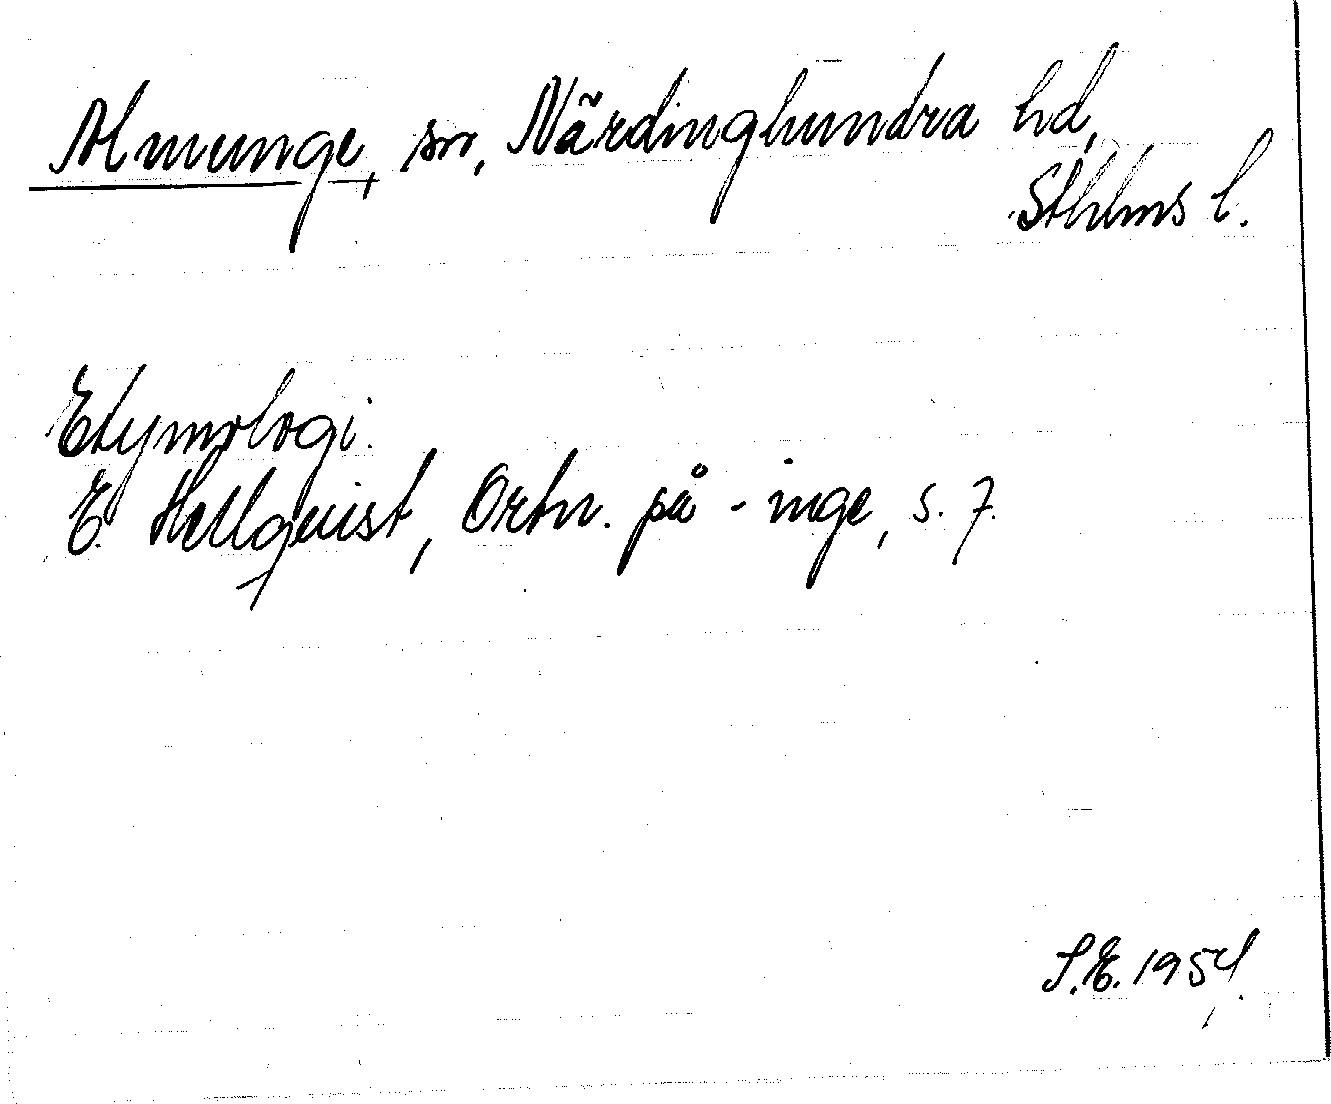 Almunge, sn, Närdinghundra hd,
Sthlms l.
Etymologi.
E. Hellquist, Ortn. på -inge, s. 7.
S.E. 1954.